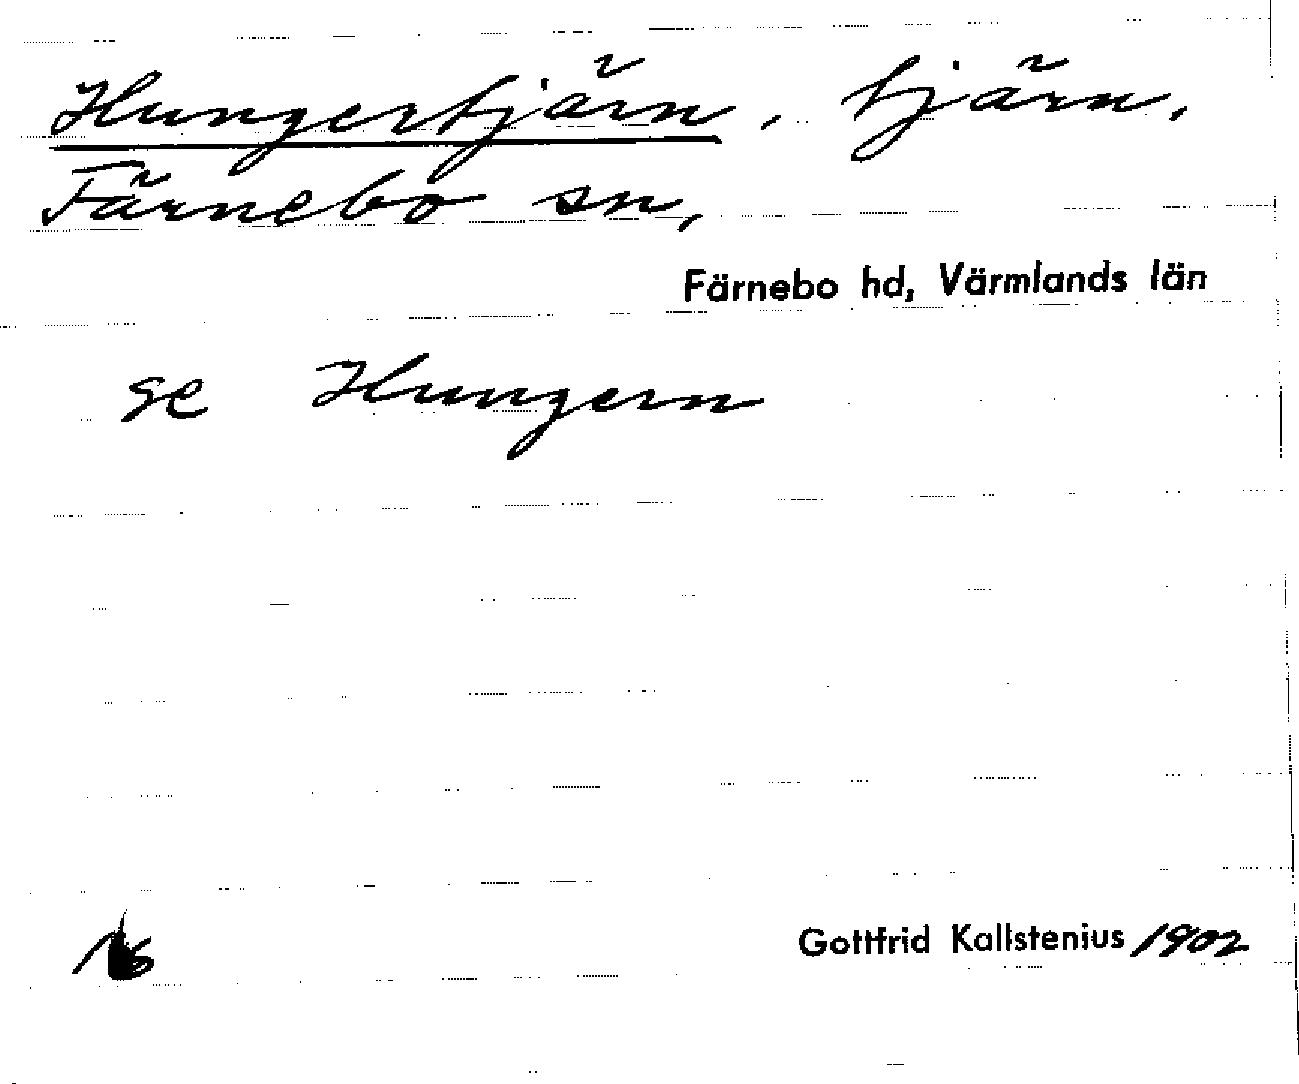 Hungertjärn, tjärn,
Färnebo sn,
Färnebo hd, Värmlands län
se Hungern
Gottfrid Kallstenius 1902